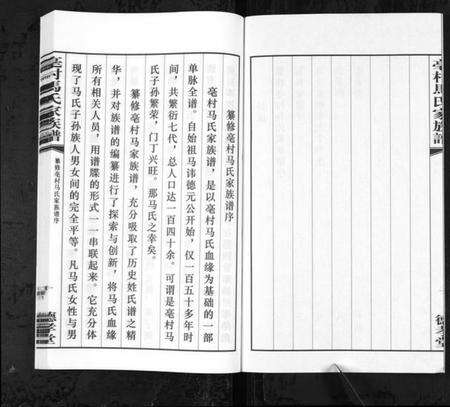 亳村馬氏家族譜
德孝堂
纂修亳村马氏家族谱序
亳村马氏家族谱，是以亳村马氏血缘为基础的一部
单脉全谱。自始祖马讳德元公开始，仅一百五十多年时
间，共繁衍七代，总人口达一百四十余。可谓是亳村马
氏子孙繁荣，门丁兴旺。那马氏之幸矣。
亳村马家族谱，充分吸取了历史姓氏谱之精
华，并对族谱的编纂进行了探索与创新，将马氏血缘
所有相关人员，用谱牒的形式一一串联起来。它充分体
现了马氏子孙族人男女间的完全平等。凡马氏女性与男
亳村馬氏家族譜
纂修亳村马氏家族谱序
德孝堂